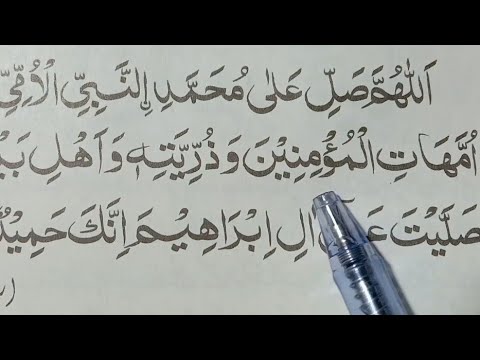 اَللّٰهُمَّ صَلِّ عَلٰى مُحَمَّدِ اِلنَّبِيِّ الْاُمِّيِّ
اُمَّهَاتِ الْمُؤْمِنِيْنَ وَذُرِّيَّتِهٖ وَاَهْلِ
صَلَّيْتَ اٰلِ اِبْرَاهِيْمَ اِنَّكَ حَمِيْدٌ